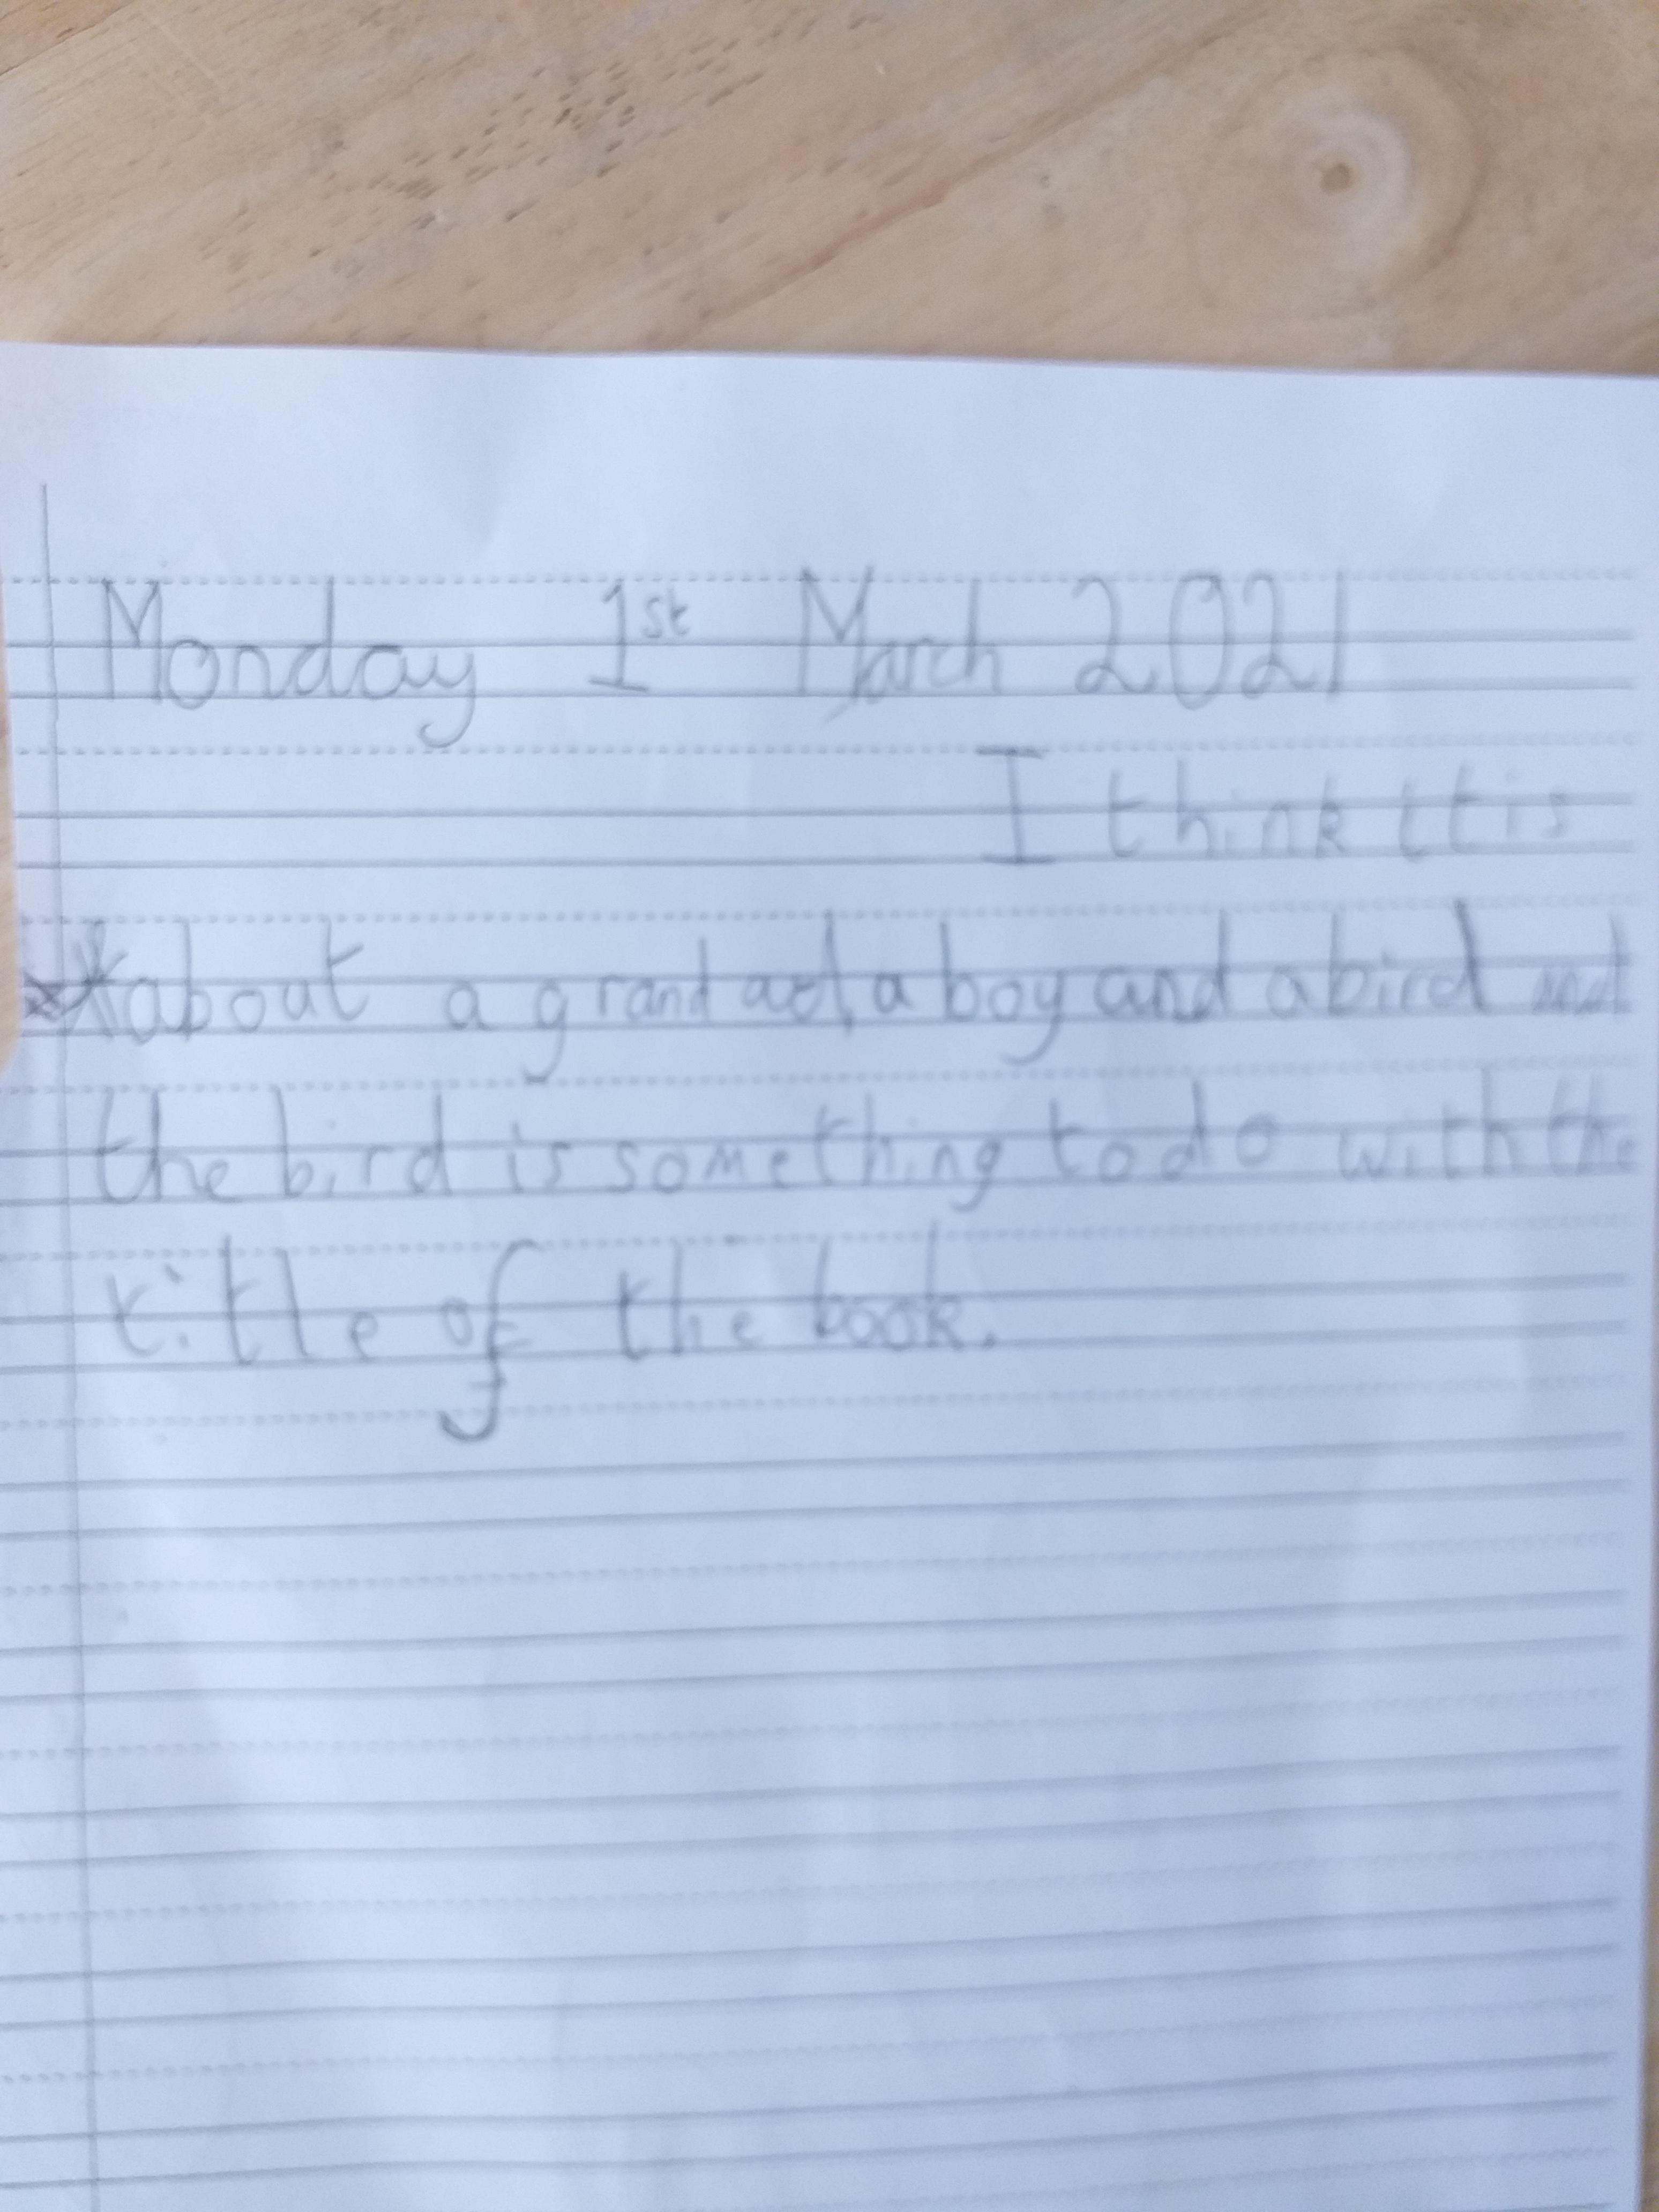 Monday 1st March 2021
I think it is
about a grand a boy and a bird and
the bird is something to do with the
title of the book.